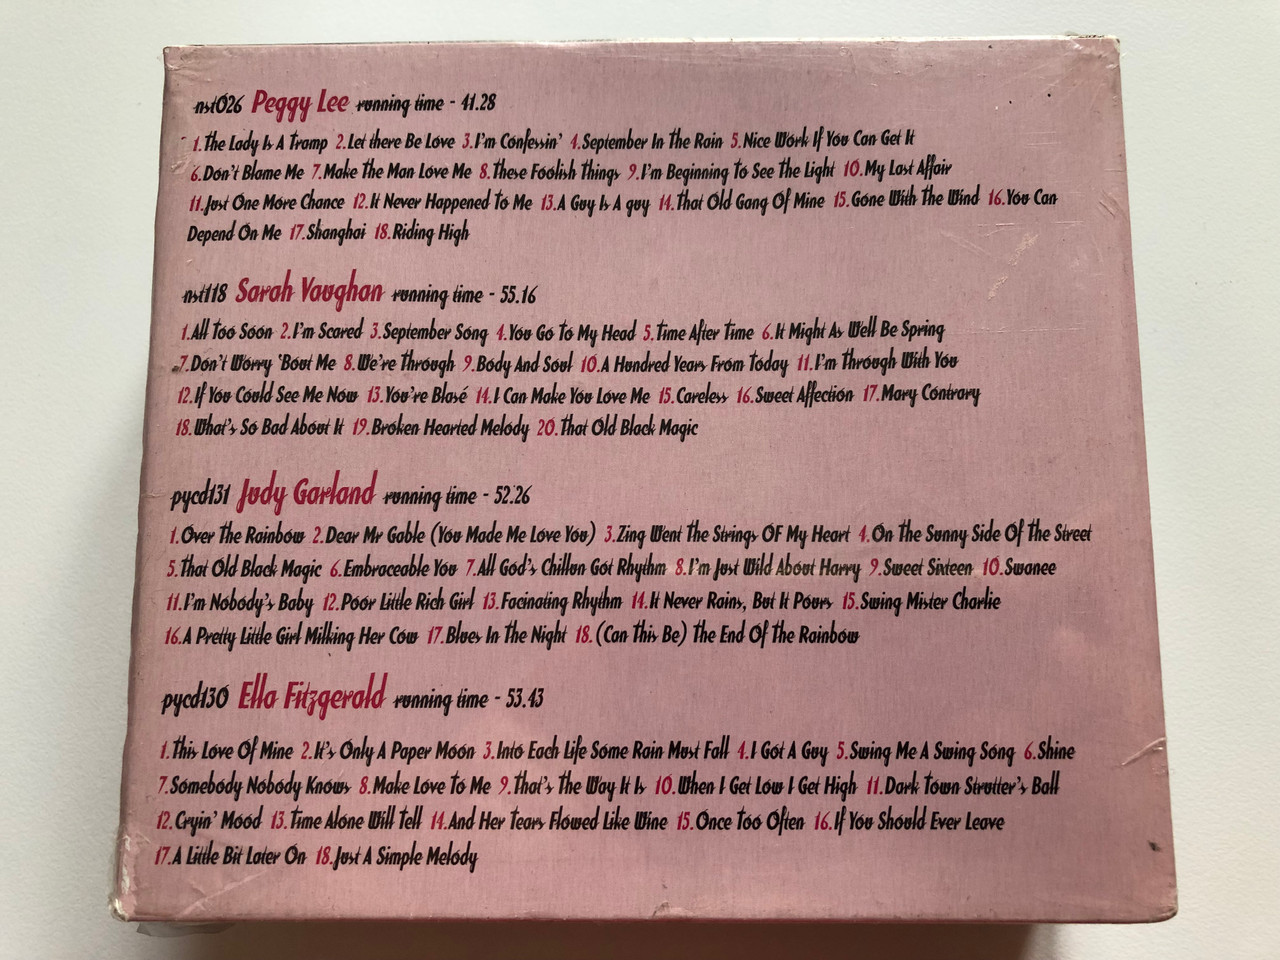 nst026 Peggy Lee running time - 41.28
1.The Lady Is A Tramp 2.Let there Be Love 3.I'm Confessin' 4.September In The Rain 5.Nice Work If You Can Get It
6.Don't Blame Me 7.Make The Man Love Me 8.These Foolish Things 9.I'm Beginning To See The Light 10.My Last Affair
11.Just One More Chance 12.It Never Happened To Me 13.A Guy Is A guy 14.That Old Gang Of Mine 15.Gone With The Wind 16.You Can
Depend On Me 17.Shanghai 18.Riding High
nst118 Sarah Vaughan running time - 55.16
1.All Too Soon 2.I'm Scared 3.September Song 4.You Go To My Head 5.Time After Time 6.It Might As Well Be Spring
7.Don't Worry 'Bout Me 8.We're Through 9.Body And Soul 10.A Hundred Years From Today 11.I'm Through With You
12.If You Could See Me Now 13.You're Blasé 14.I Can Make You Love Me 15.Careless 16.Sweet Affection 17.Mary Contrary
18.What's So Bad About It 19.Broken Hearted Melody 20.That Old Black Magic
pycd131 Judy Garland running time - 52.26
1.Over The Rainbow 2.Dear Mr Gable (You Made Me Love You) 3.Zing Went The Strings OF My Heart 4.On The Sunny Side Of The Street
5.That Old Black Magic 6.Embraceable You 7.All God's Chillun Got Rhythm 8.I'm Just Wild About Harry 9.Sweet Sixteen 10.Swanee
11.I'm Nobody's Baby 12.Poor Little Rich Girl 13.Facinating Rhythm 14.It Never Rains, But It Pours 15.Swing Mister Charlie
16.A Pretty Little Girl Milking Her Cow 17.Blues In The Night 18.(Can This Be) The End Of The Rainbow
pycd130 Ella Fitzgerald running time - 53.43
1.This Love Of Mine 2.It's Only A Paper Moon 3.Into Each Life Some Rain Must Fall 4.I Got A Guy 5.Swing Me A Swing Song 6.Shine
7.Somebody Nobody Knows 8.Make Love To Me 9.That's The Way It Is 10.When I Get Low I Get High 11.Dark Town Strutter's Ball
12.Cryin' Mood 13.Time Alone Will Tell 14.And Her Tears Flowed Like Wine 15.Once Too Often 16.If You Should Ever Leave
17.A Little Bit Later On 18.Just A Simple Melody